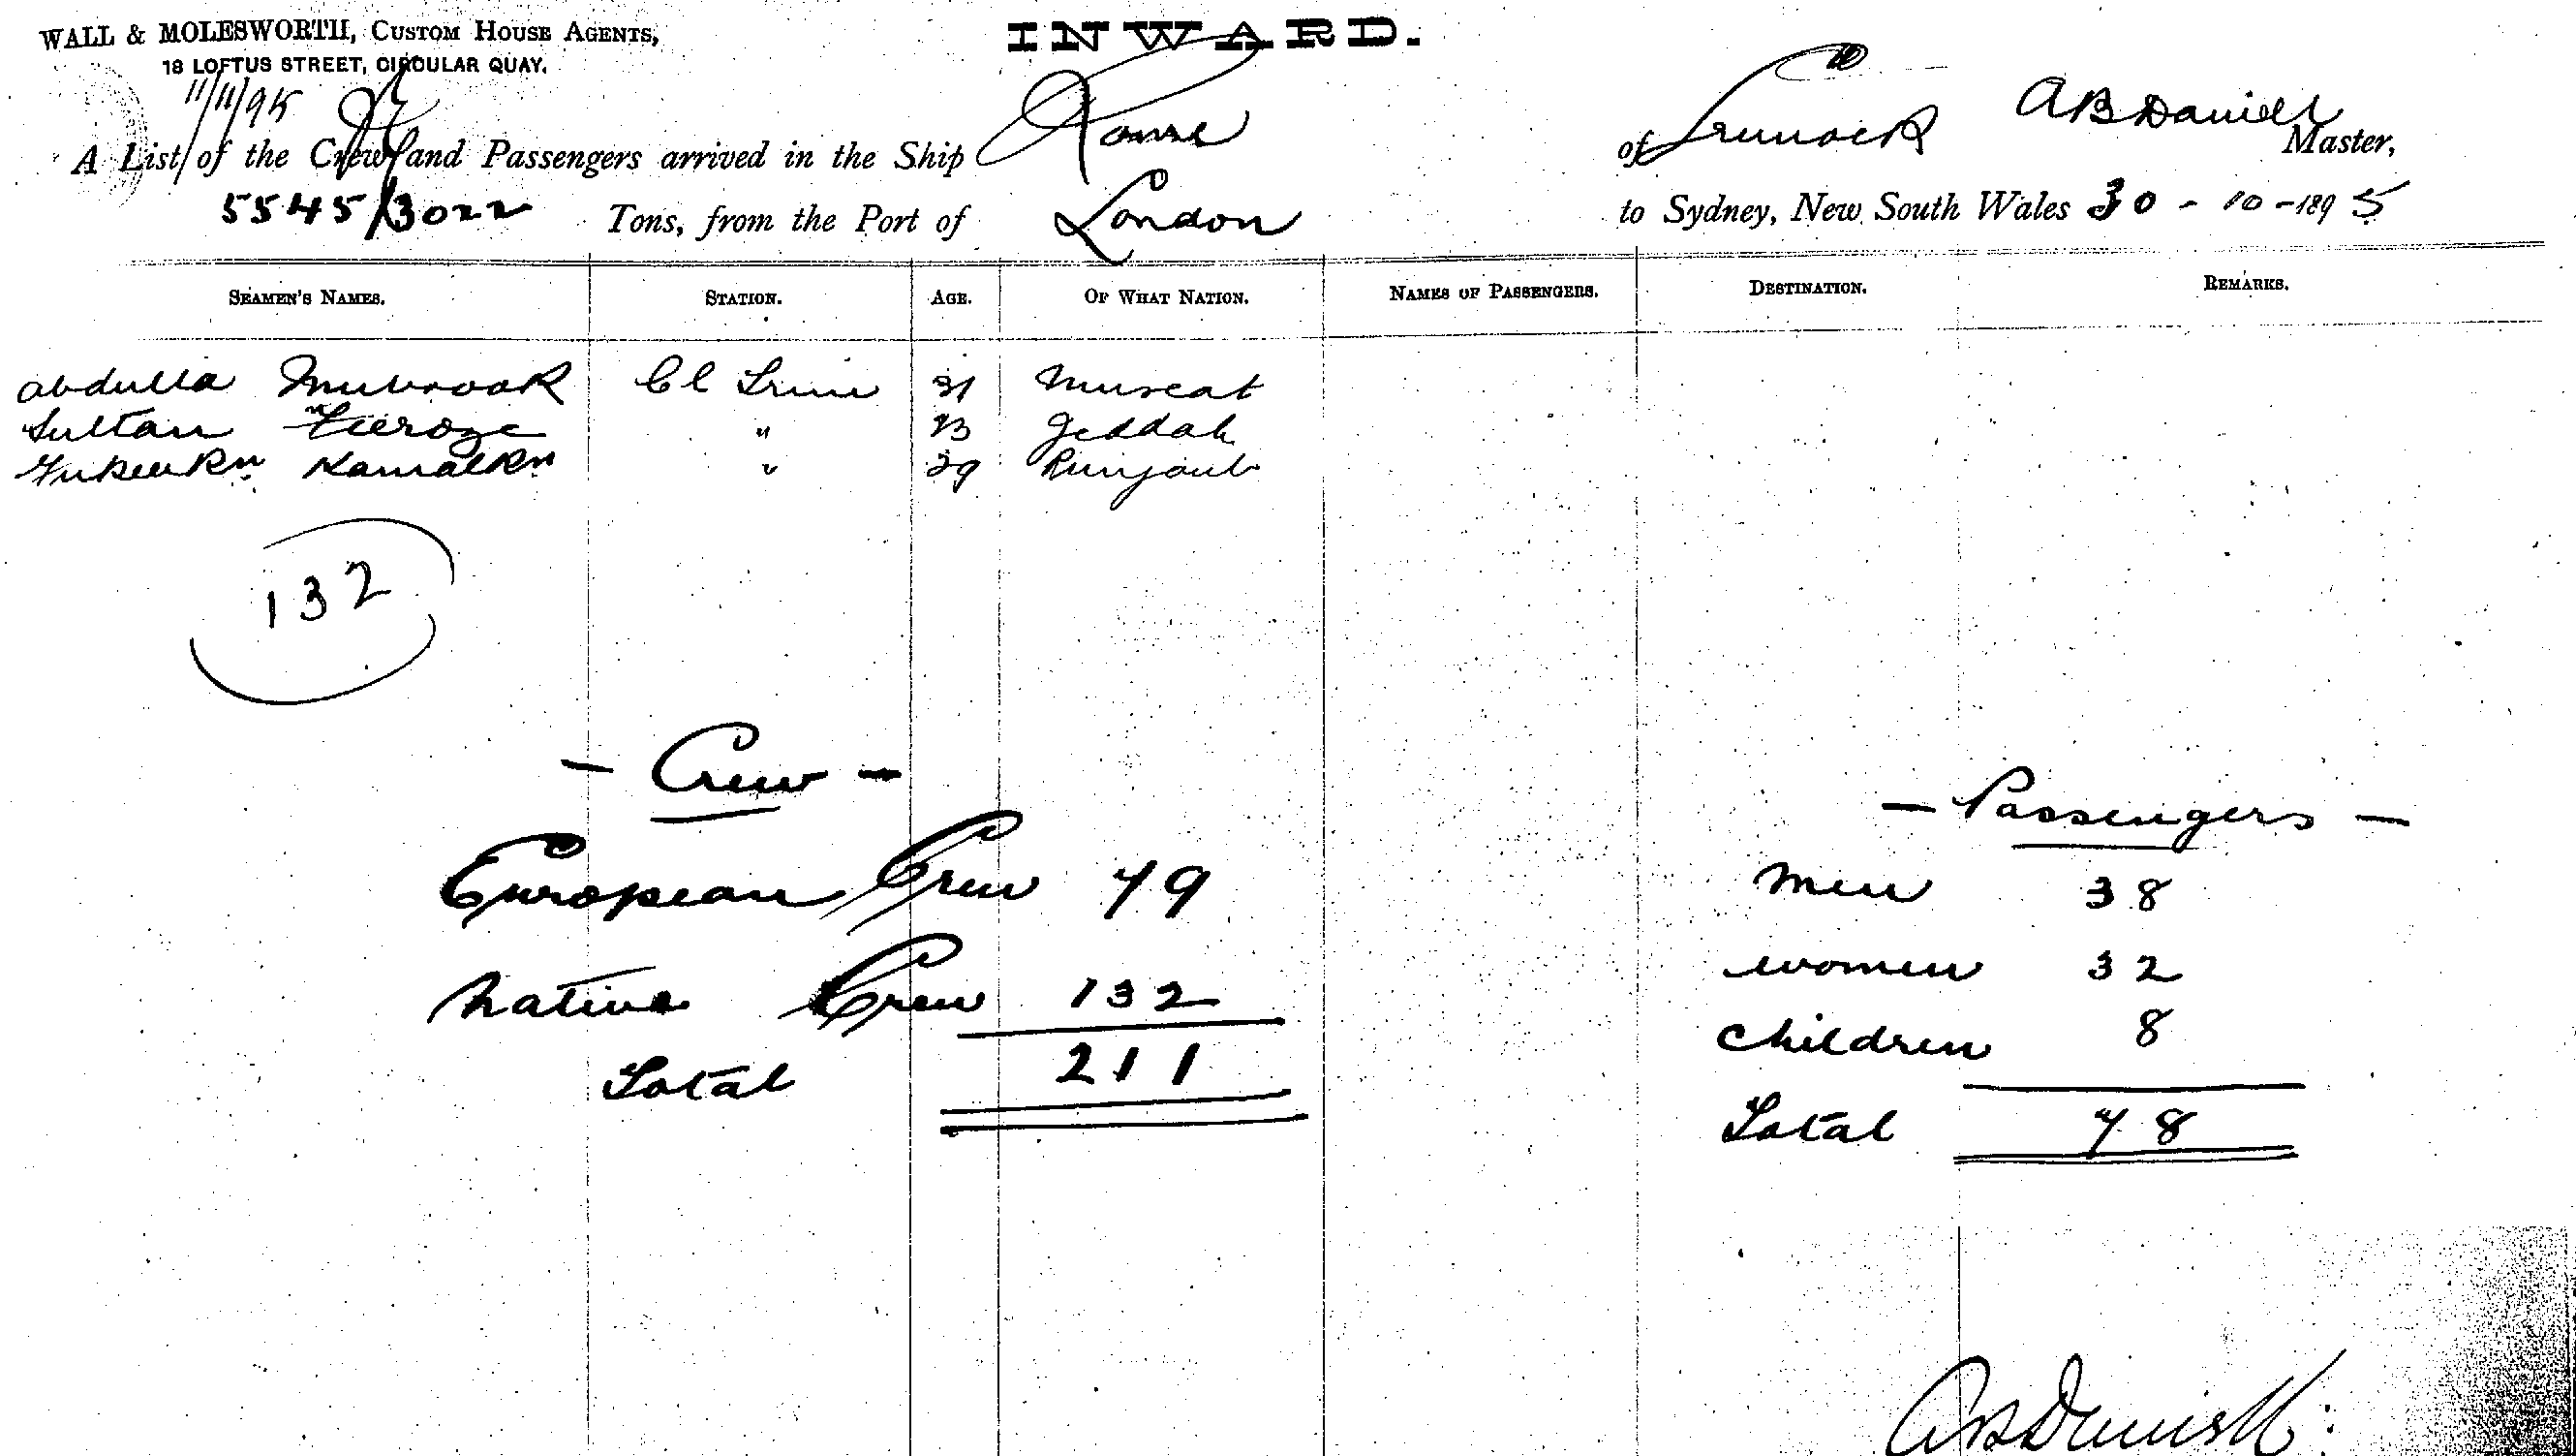 WALL & MOLESWORTH, CUSTOM HOUSE AGENTS,
18 LOFTUS STREET, CIRCULAR QUAY.
INWARD.
11/11/95
A List of the Crew and Passengers arrived in the Ship Rome of Greenock A B Daniell Master,
5545/3022 Tons, from the Port of London to Sydney, New South Wales 30 - 10 - 1895
SEAMEN'S NAMES. STATION. AGE. OF WHAT NATION. NAMES OF PASSENGERS. DESTINATION. REMARKS.
Abdulla Mubrook Cl Trim 31 Muscat
Sultan Feeroze " 23 Jeddah
Kamalkn " 29 Punjaub
132
- Crew -
European Crew 79
Native Crew 132
Total 211
- Passengers -
Men 38
Women 32
Children 8
Total 78
A B Daniell